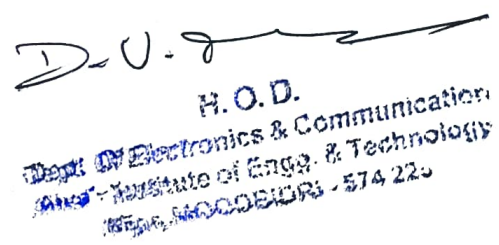 D. V.
H. O. D.
Dept. Of Electronics & Communication
Institute of Engg. & Technology
Mijar, MOODBIDRI - 574 225